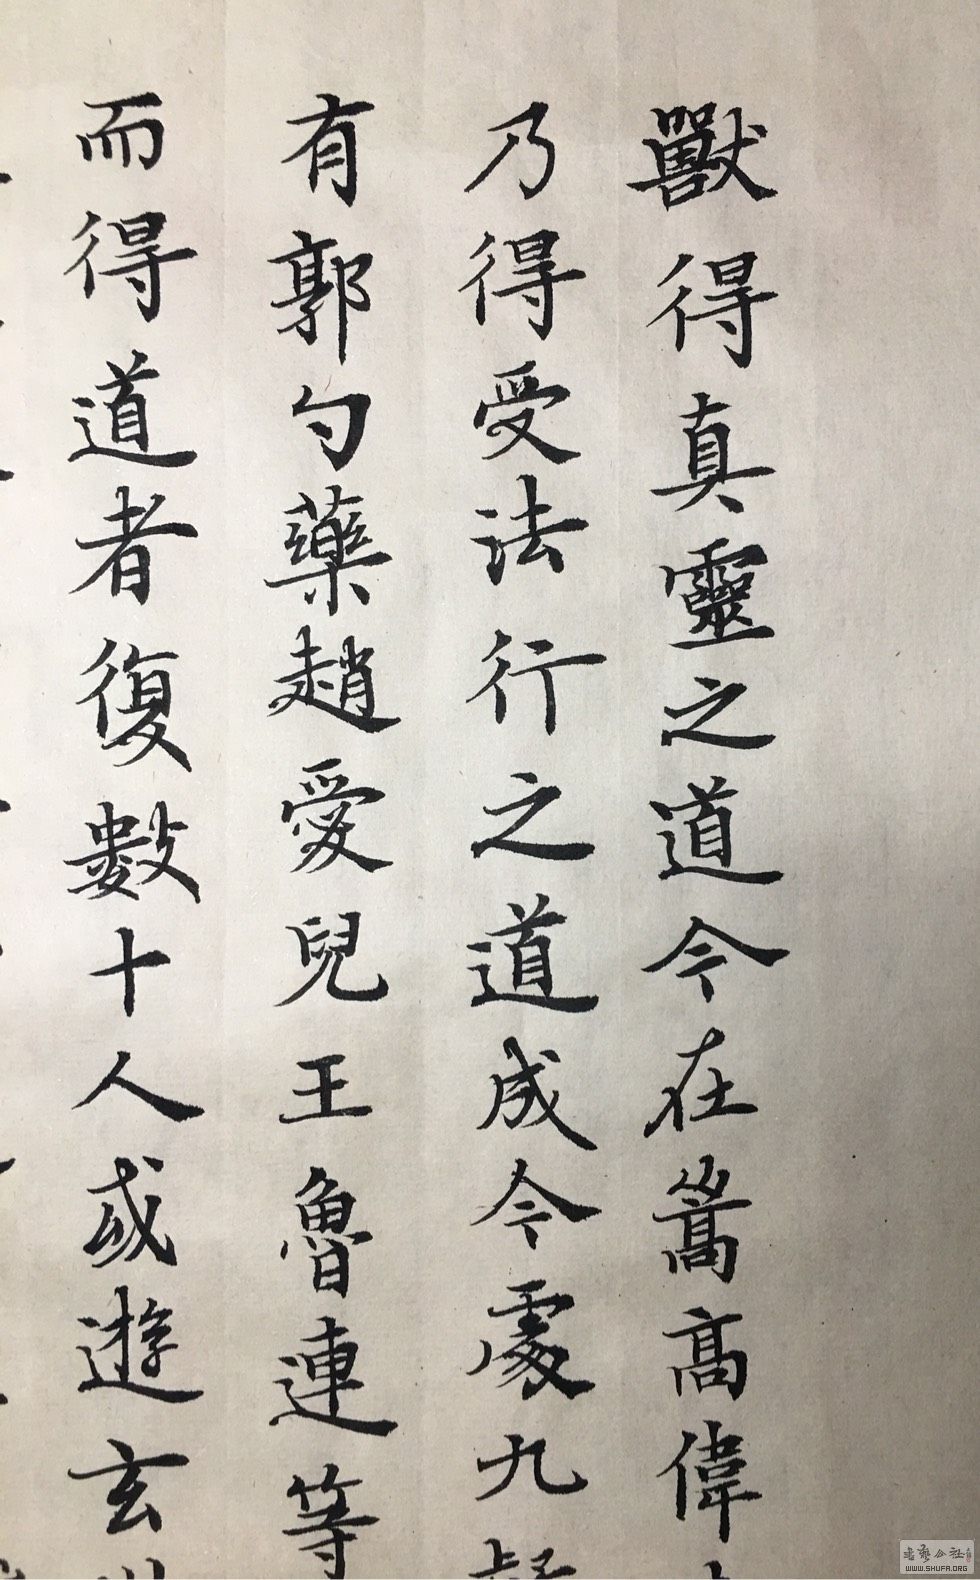 獸得真靈之道今在嵩高偉
乃得受法行之道成今處九
有郭勺藥趙愛兒王魯連等
而得道者復數十人或遊玄
书艺公社
WWW.SHUFA.ORG